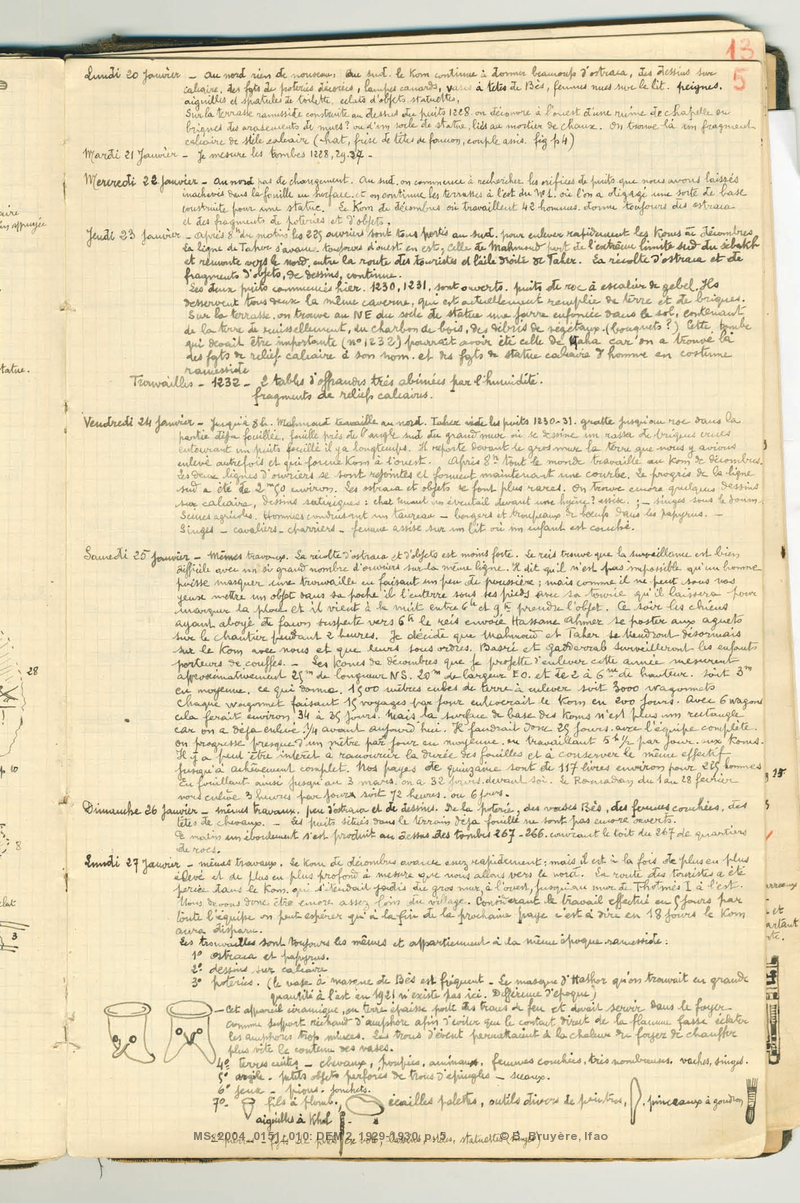 13
5
Lundi 20 Janvier – Au nord rien de nouveau. Au sud. le Kom continue à donner beaucoup d'ostraca, des dessins sur
calcaire, des fgts de poteries décorées, lampes canards, vases à têtes de Bès, femmes nues sur le lit. peignes.
aiguilles et spatules de toilette, éclats d'objets statuettes,
Sur la terrasse ramesside construite au dessus du puits 1228. on découvre à l'ouest d'une ruine de chapelle en
briques des arasements de murs? ou d'un socle de statue, liés au mortier de chaux. On trouve là un fragment
calcaire de stèle calcaire (chat, frise de têtes de faucon, couple assis. fig p 4)
Mardi 21 Janvier – Je mesure les tombes 1228, 29. 
Mercredi 22 Janvier – Au nord pas de changement. Au sud. on commence à rechercher les orifices de puits que nous avons laissés
inachevés dans la fouille en surface. et on continue les terrasses à l'est du où l'on a dégagé une sorte de base
construite pour une statue. Le Kom de décombres où travaillent 42 hommes. donne toujours des ostraca
et des fragments de poteries et d'objets.
Jeudi 23 Janvier – après 8h du matin les 225 ouvriers sont tous partis au sud. pour enlever rapidement les Koms de décombres
la ligne de Taher s'avance toujours d'ouest en est, celle de Mahmoud part de l'extrême limite sud du sebakh
et remonte vers le nord, entre la route des touristes et l'aile droite de Taher. La récolte d'ostraca et de
fragments d'objets, de dessins, continue.
Les deux puits commencés hier. 1230, 1231, sont ouverts. puits de roc à escalier de gebel. Ils
desservent tous deux la même caverne, qui est actuellement remplie de terre et de briques.
Sur la terrasse, on trouve au NE du socle de statue une jarre enfoncée dans le sol, contenant
de la terre de ruissellement, du charbon de bois, des débris de végétaux (bouquets?) Cette tombe
qui devait être importante (n° 1232) pourrait avoir été celle de Kaha car on a trouvé là
des fgts de relief calcaire à son nom. et des fgts de statue calcaire d'homme en costume
ramesside
Trouvailles – 1232 – 2 tables d'offrandes très abimées par l'humidité.
fragments de reliefs calcaires.
Vendredi 24 Janvier – Jusqu'à 8h. Mahmoud travaille au nord. Taher vide les puits 1230-31. gratte jusqu'au roc dans la
partie déjà fouillée, fouille près de l'angle sud du grand mur où se dessine un de briques crues
entourant un puits fouillé il y a longtemps. Il reporte devant le gros mur la terre que nous y avions
enlevé autrefois et qui forme Kom à l'ouest. Après 8h tout le monde travaille au Kom de décombres.
Les deux lignes d'ouvriers se sont rejointes et forment maintenant une courbe. Le progrès de la ligne
sud a été de 2m50 environ. Les ostraca et objets se font plus rares. On trouve encore quelques dessins
sur calcaire, dessins satiriques: chat tenant un éventail devant une hyène? assise. – singes sous le doum.
Scènes agricoles. Hommes conduisant un taureau – bergers et troupeaux de bœufs dans les papyrus. –
Singes – cavaliers – charriers – femme assise sur un lit où un enfant est couché.
Samedi 25 Janvier – Mêmes travaux. La récolte d'ostraca et d'objets est moins forte. Le reis trouve que la surveillance est bien
difficile avec un si grand nombre d'ouvriers sur la même ligne. Il dit qu'il n'est pas impossible qu'un homme
puisse masquer une trouvaille en faisant un peu de poussière; mais comme il ne peut sous nos
yeux mettre un objet dans sa poche il l'enterre sous ses pieds avec sa tourie qu'il laissera pour
marquer la place et il vient à la nuit entre 6h et 9h prendre l'objet. Ce soir les chiens
ayant aboyé de façon suspecte vers 6h le reis envoie Hassane Ahmez se poster aux aguets
sur le chantier pendant 2 heures. Je décide que Mahmoud et Taher se tiendront désormais
sur le Kom avec nous et que leurs sous ordres. Basri et Gadderab surveilleront les enfants
porteurs de couffes. – Les Koms de décombres que je projette d'enlever cette année mesurent
approximativement 25m de longueur NS. 20m de largeur E O. et de 2 à 6m de hauteur. soit 3m
en moyenne, ce qui donne. 1500 mètres cubes de terre à enlever soit 3000 wagonnets
Chaque wagonnet faisant 15 voyages par jour enlèverait le Kom en 200 jours. Avec 6 wagons
cela ferait environ 34 à 35 jours. Mais la surface de base des Koms n'est plus un rectangle
car on a déjà enlevé 1/4 avant aujourd'hui. Il faudrait donc. 25 jours. avec l'équipe complète.
On progresse presque d'un mètre par jour en moyenne, en travaillant 5h 1/2 par jour. aux Koms.
Il y a peut être intérêt à raccourcir la durée des fouilles et à conserver le même effectif
jusqu'à achèvement complet. Nos payes de quinzaine sont de 117 livres environ pour 225 hommes
En fouillant ainsi jusqu'au 3 mars, on a 32 jours devant soi. Le Ramadan du 1 au 28 février
nous enlève 3 heures par jour, soit 72 heures. ou 6 jours.
Dimanche 26 Janvier – mêmes travaux. peu d'ostraca et de dessins. De la poterie, des vases Bès, des femmes couchées, des
têtes de chevaux. – Les puits situés dans le terrain déjà fouillé ne sont pas encore ouverts.
Ce matin un éboulement s'est produit au dessus des tombes 267-266. couvrant le toit du 267 de quartiers
de rocs.
Lundi 27 Janvier – mêmes travaux. Le Kom de décombres avance assez rapidement; mais il est à la fois de plus en plus
élevé et de plus en plus profond à mesure que nous allons vers le nord. La route des touristes a été
percée dans le Kom. qui s'étendait jadis du gros mur, à l'ouest, jusqu'au mur de Thotmès I à l'est.
Nous devons donc être encore assez loin du village. Considérant le travail effectué en 9 jours par
toute l'équipe on peut espérer qu'à la fin de la prochaine paye c'est à dire en 18 jours le Kom
aura disparu.
Les trouvailles sont toujours les mêmes et appartiennent à la même époque ramesside:
1° ostraca et papyrus.
2° dessins sur calcaire
3° poteries. (le vase à masque de Bès est fréquent – Le masque d'Hathor qu'on trouvait en grande
quantité à l'est en 1921 n'existe pas ici. Différence d'époque)
– Cet appareil céramique, en terre épaisse porte des traces de feu et devait servir dans le foyer
comme support réchaud d'amphore afin d'éviter que le contact direct de la flamme fasse éclater
les amphores trop minces. Les trous d'évent permettaient à la chaleur du foyer de chauffer
plus vite le contenu des vases.
4° terres cuites – chevaux, poupées, animaux, femmes couchées, très nombreuses, vaches, singes.
5° argile. petits objets perforés de trous d'épingles – sceaux.
6° jeux – pions. jonchets.
7° fils à plomb, écailles palettes, outils divers de peintres, pinceaux à goudron,
aiguilles à Khol
MS_2004_0151_010: DEM 2, 1929-1930, p. 5 © B. Bruyère, Ifao
28
p 10
8
3
15